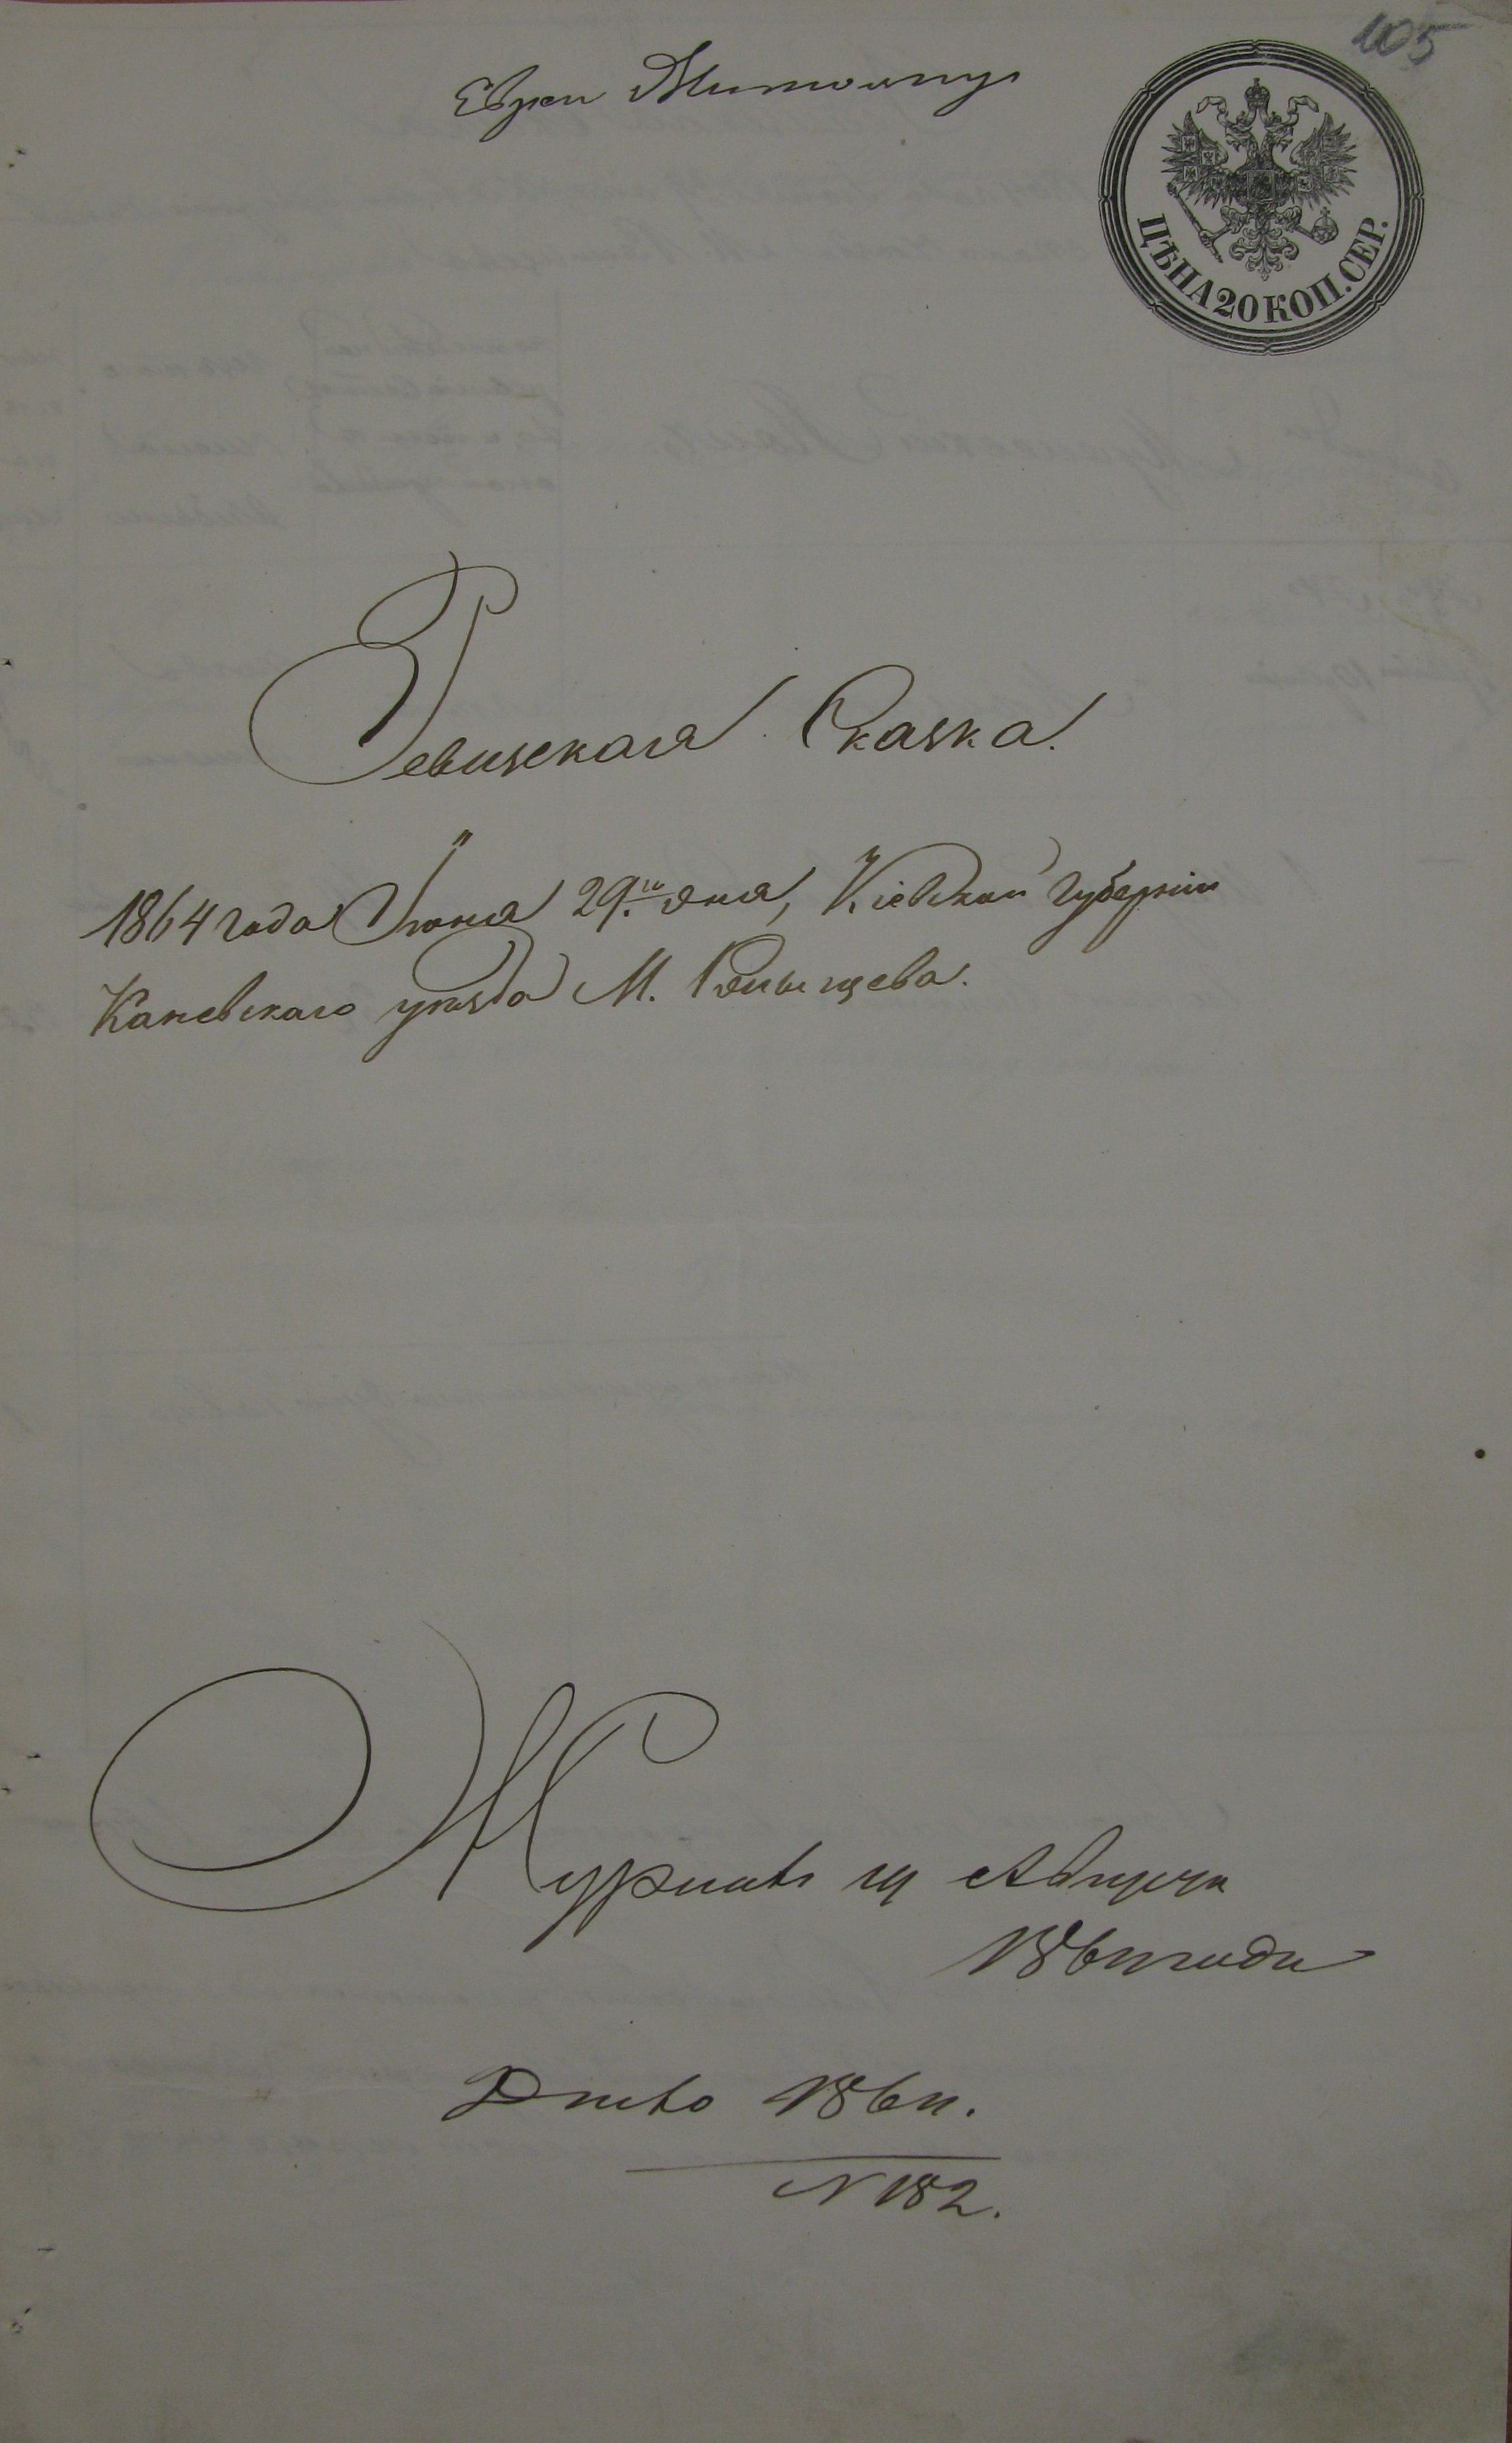 105
Евреи
ЦѢНА 20 КОП. СЕР.
Ревизская Сказка.
1864 года Іюня 29.го дня, Кіевской Губерніи
Каневскаго уѣзда М. Ржищева.
Журналъ Августа
186 года
Дѣло 186
N 182.